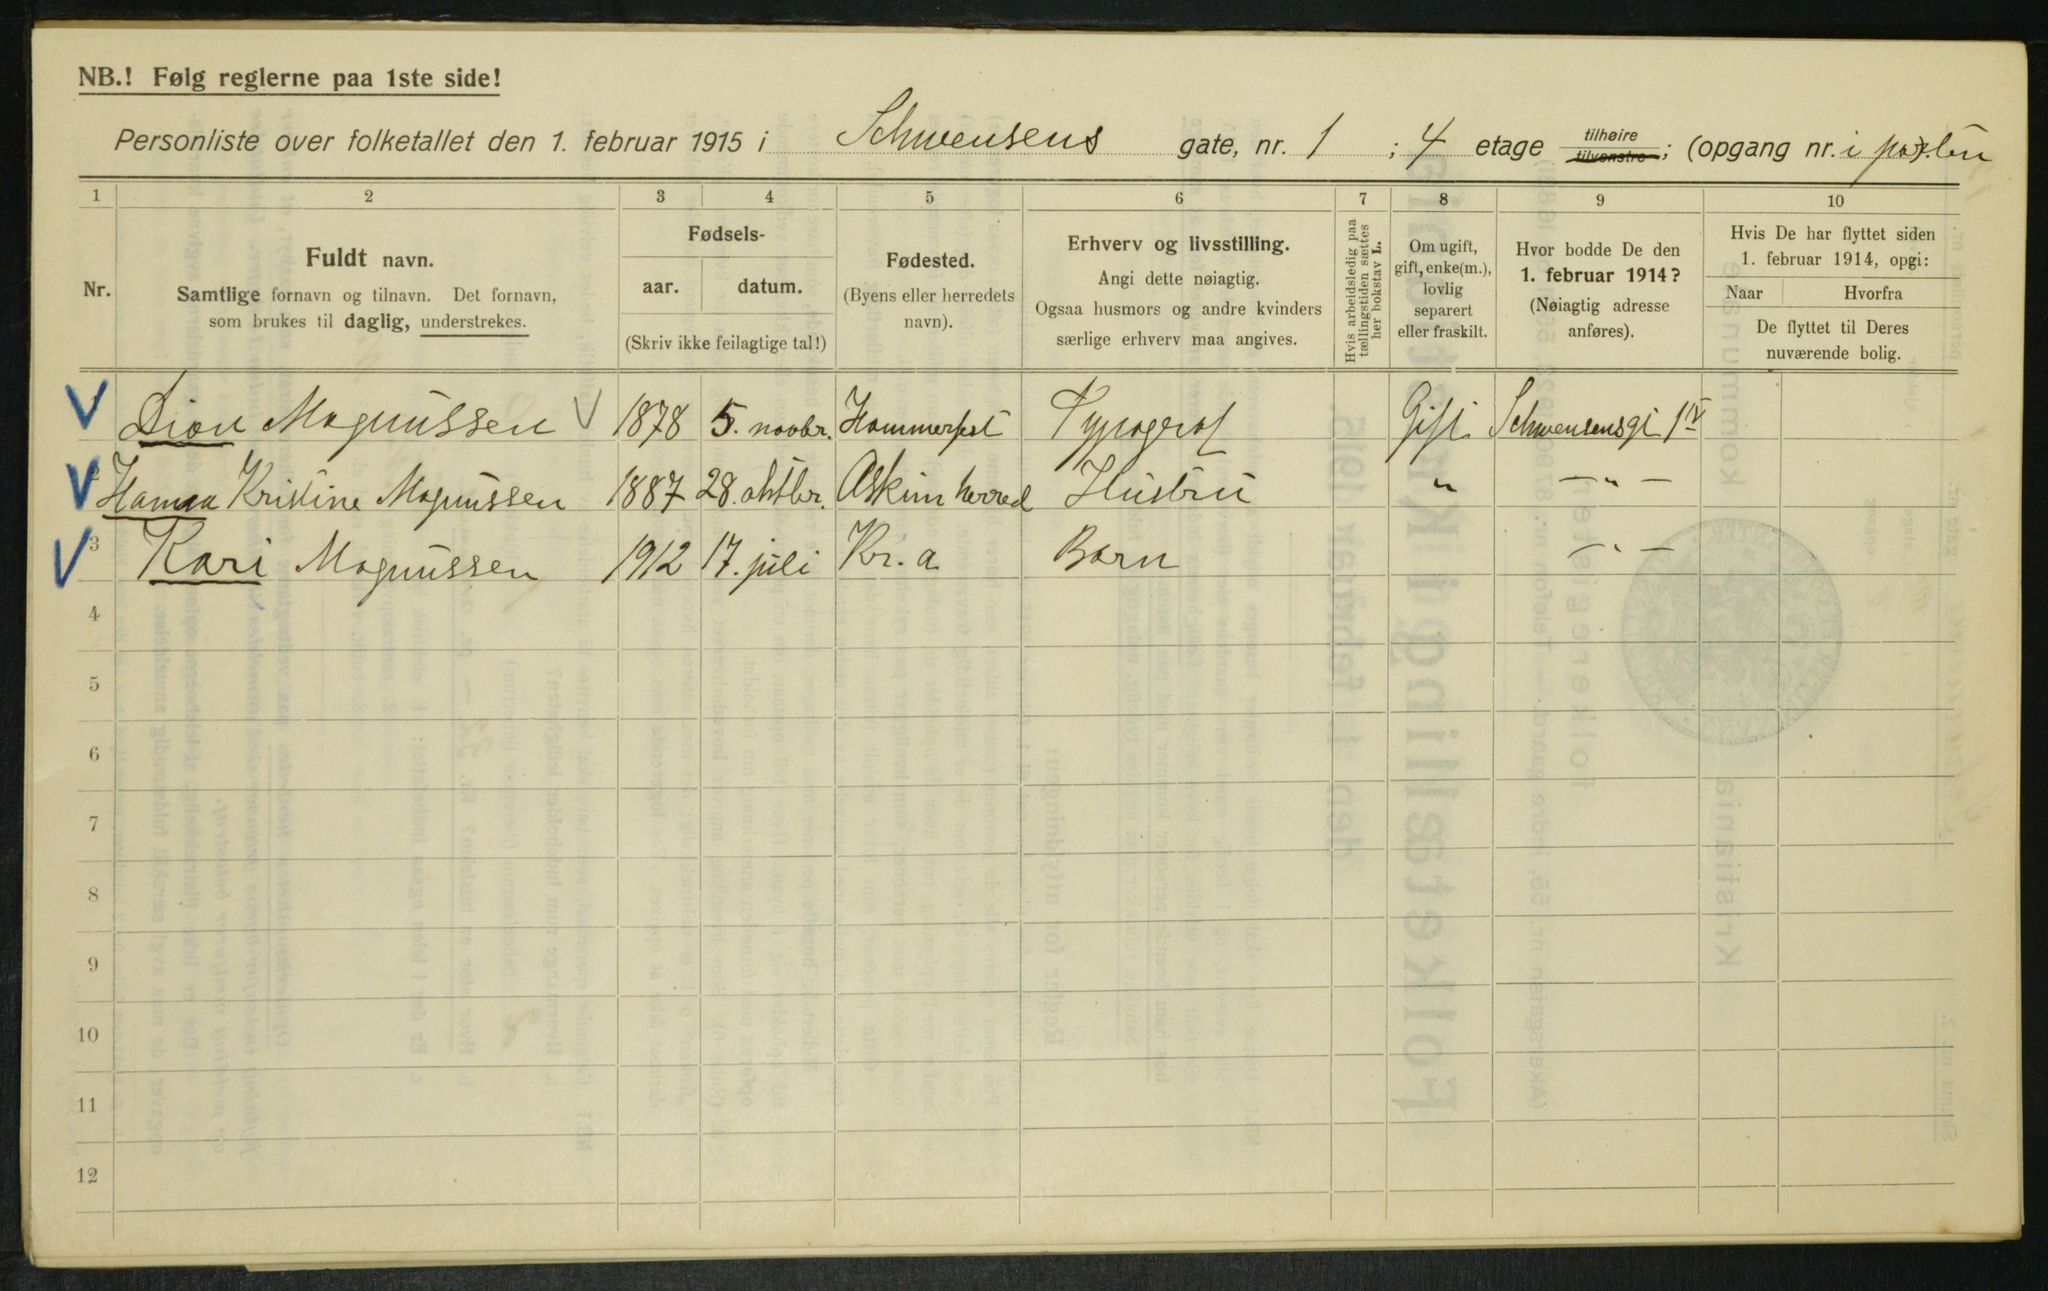 NB.! Følg reglerne paa 1ste side!
Personliste over folketallet den 1. februar 1915 i Schwensens gate, nr. 1 ; 4 etage tilhøire tilvenstre; (opgang nr. i porten
1 2 3 4 5 6 7 8 9 10
Nr.
Fuldt navn.
Samtlige fornavn og tilnavn. Det fornavn,
som brukes til daglig, understrekes.
Fødsels-
aar. datum.
(Skriv ikke feilagtige tal!)
Fødested.
(Byens eller herredets
navn).
Erhverv og livsstilling.
Angi dette nøiagtig.
Ogsaa husmors og andre kvinders
særlige erhverv maa angives.
Hvis arbeidsledig paa
tællingstiden sættes
her bokstav L.
Om ugift,
gift, enke(m.),
lovlig
separert
eller fraskilt.
Hvor bodde De den
1. februar 1914?
(Nøiagtig adresse
anføres).
Hvis De har flyttet siden
1. februar 1914, opgi:
Naar Hvorfra
De flyttet til Deres
nuværende bolig.
Dion Magnussen 1878 5. novbr. Hammerfest Typograf Gift Schwensensgt 1 IV
2 Hanna Kristine Magnussen 1887 28. oktbr. Askim herred Husbru " — " —
3 Kari Magnussen 1912 17. juli Kr. a Barn — " —
4
5
6
7
8
9
10
11
12